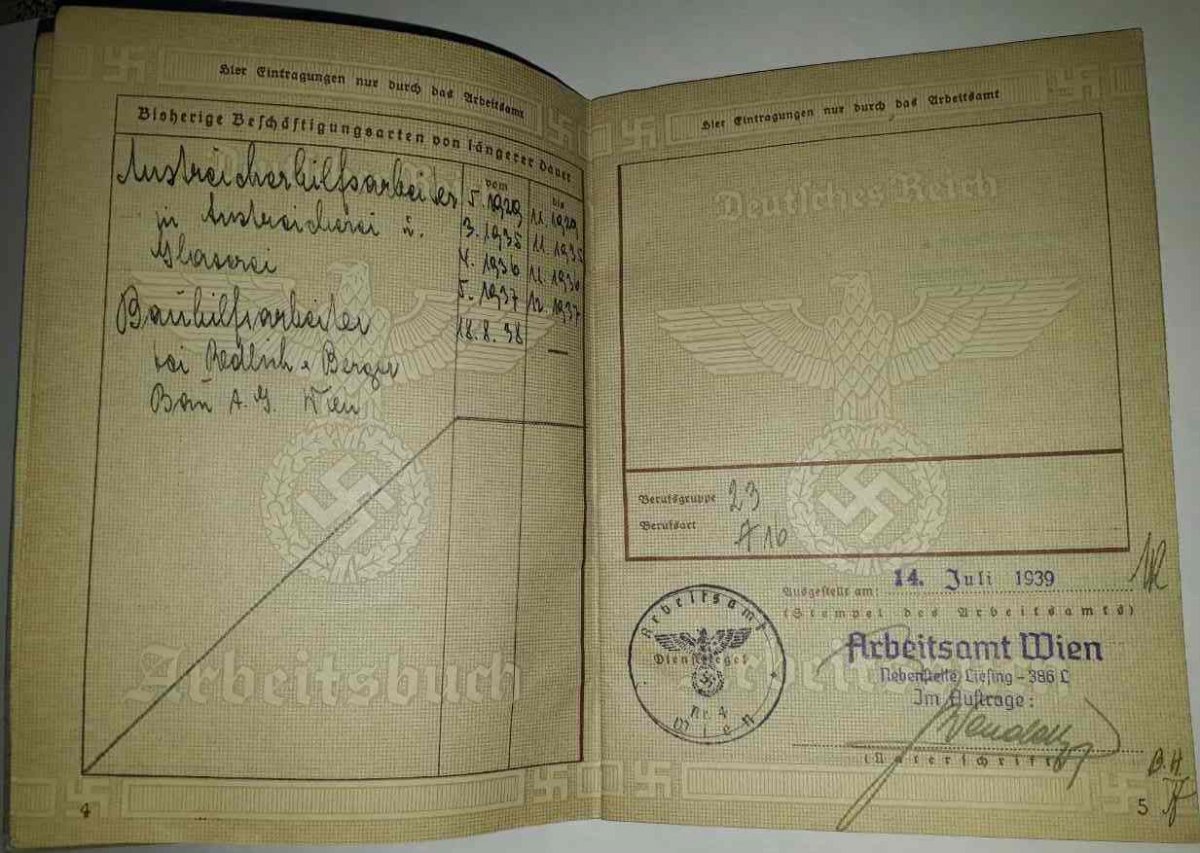 Hier Eintragungen nur durch das Arbeitsamt
Bisherige Beschäftigungsarten von längerer Dauer
vom bis
Anstreicherhilfsarbeiter 5. 1929 11. 1929
in Anstreicherei u. 3. 1935 11. 1935
Glaserei 4. 1936 11. 1936
5. 1937 12. 1937
Bauhilfsarbeiter 18. 8. 38 —
bei Redlich & Berger
Bau A. G. Wien
Arbeitsbuch
4
Hier Eintragungen nur durch das Arbeitsamt
Deutsches Reich
Berufsgruppe 23
Berufsart A 10
Ausgestellt am: 14. Juli 1939
(Stempel des Arbeitsamts)
Arbeitsamt Wien
Nebenstelle Liesing - 386 L
Im Auftrage:
(Unterschrift)
Arbeitsamt
Dienstsiegel
Nr. 4
Wien
B. H.
5